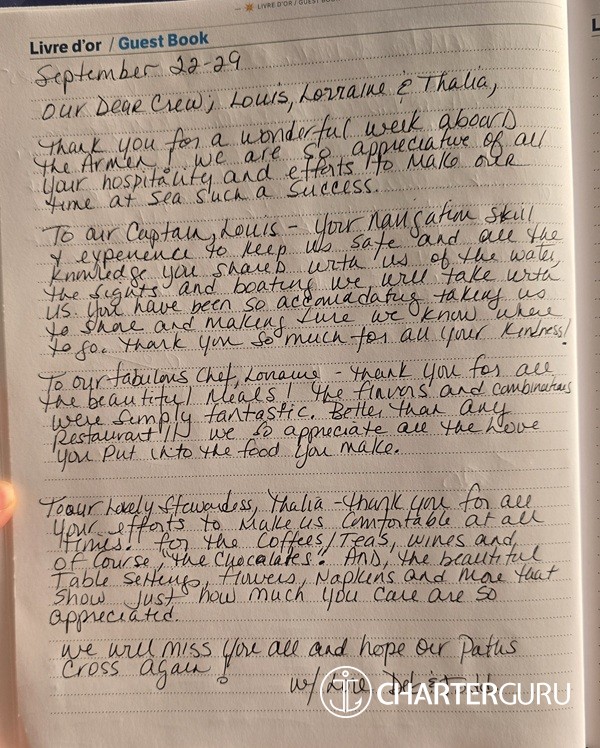 LIVRE D'OR / GUEST BOOK
Livre d'or / Guest Book
September 22-29
Our Dear Crew; Louis, Lorraine & Thalia,
Thank you for a wonderful week aboard
the Armen! We are so appreciative of all
your hospitality and efforts to make our
time at sea such a success.
To our Captain, Louis - your navigation skill
& experience to keep us safe and all the
knowledge you shared with us of the water,
the sights and boating we will take with
us. You have been so accomadating taking us
to shore and making sure we know where
to go. Thank you so much for all your kindness!
To our fabulous Chef, Lorraine - thank you for all
the beautiful meals! The flavors and combinations
were simply fantastic. Better than any
Restaurant!!! We so appreciate all the love
you put into the food you make.
To our lovely Stewardess, Thalia - thank you for all
your efforts to make us comfortable at all
times! For the coffees/Teas, wines and,
of course, the chocolates! And, the beautiful
Table Settings, flowers, Napkins and more that
show just how much you care are so
appreciated.
We will miss you all and hope our paths
cross again!
w/ Love, Deb & Todd
CHARTERGURU
L